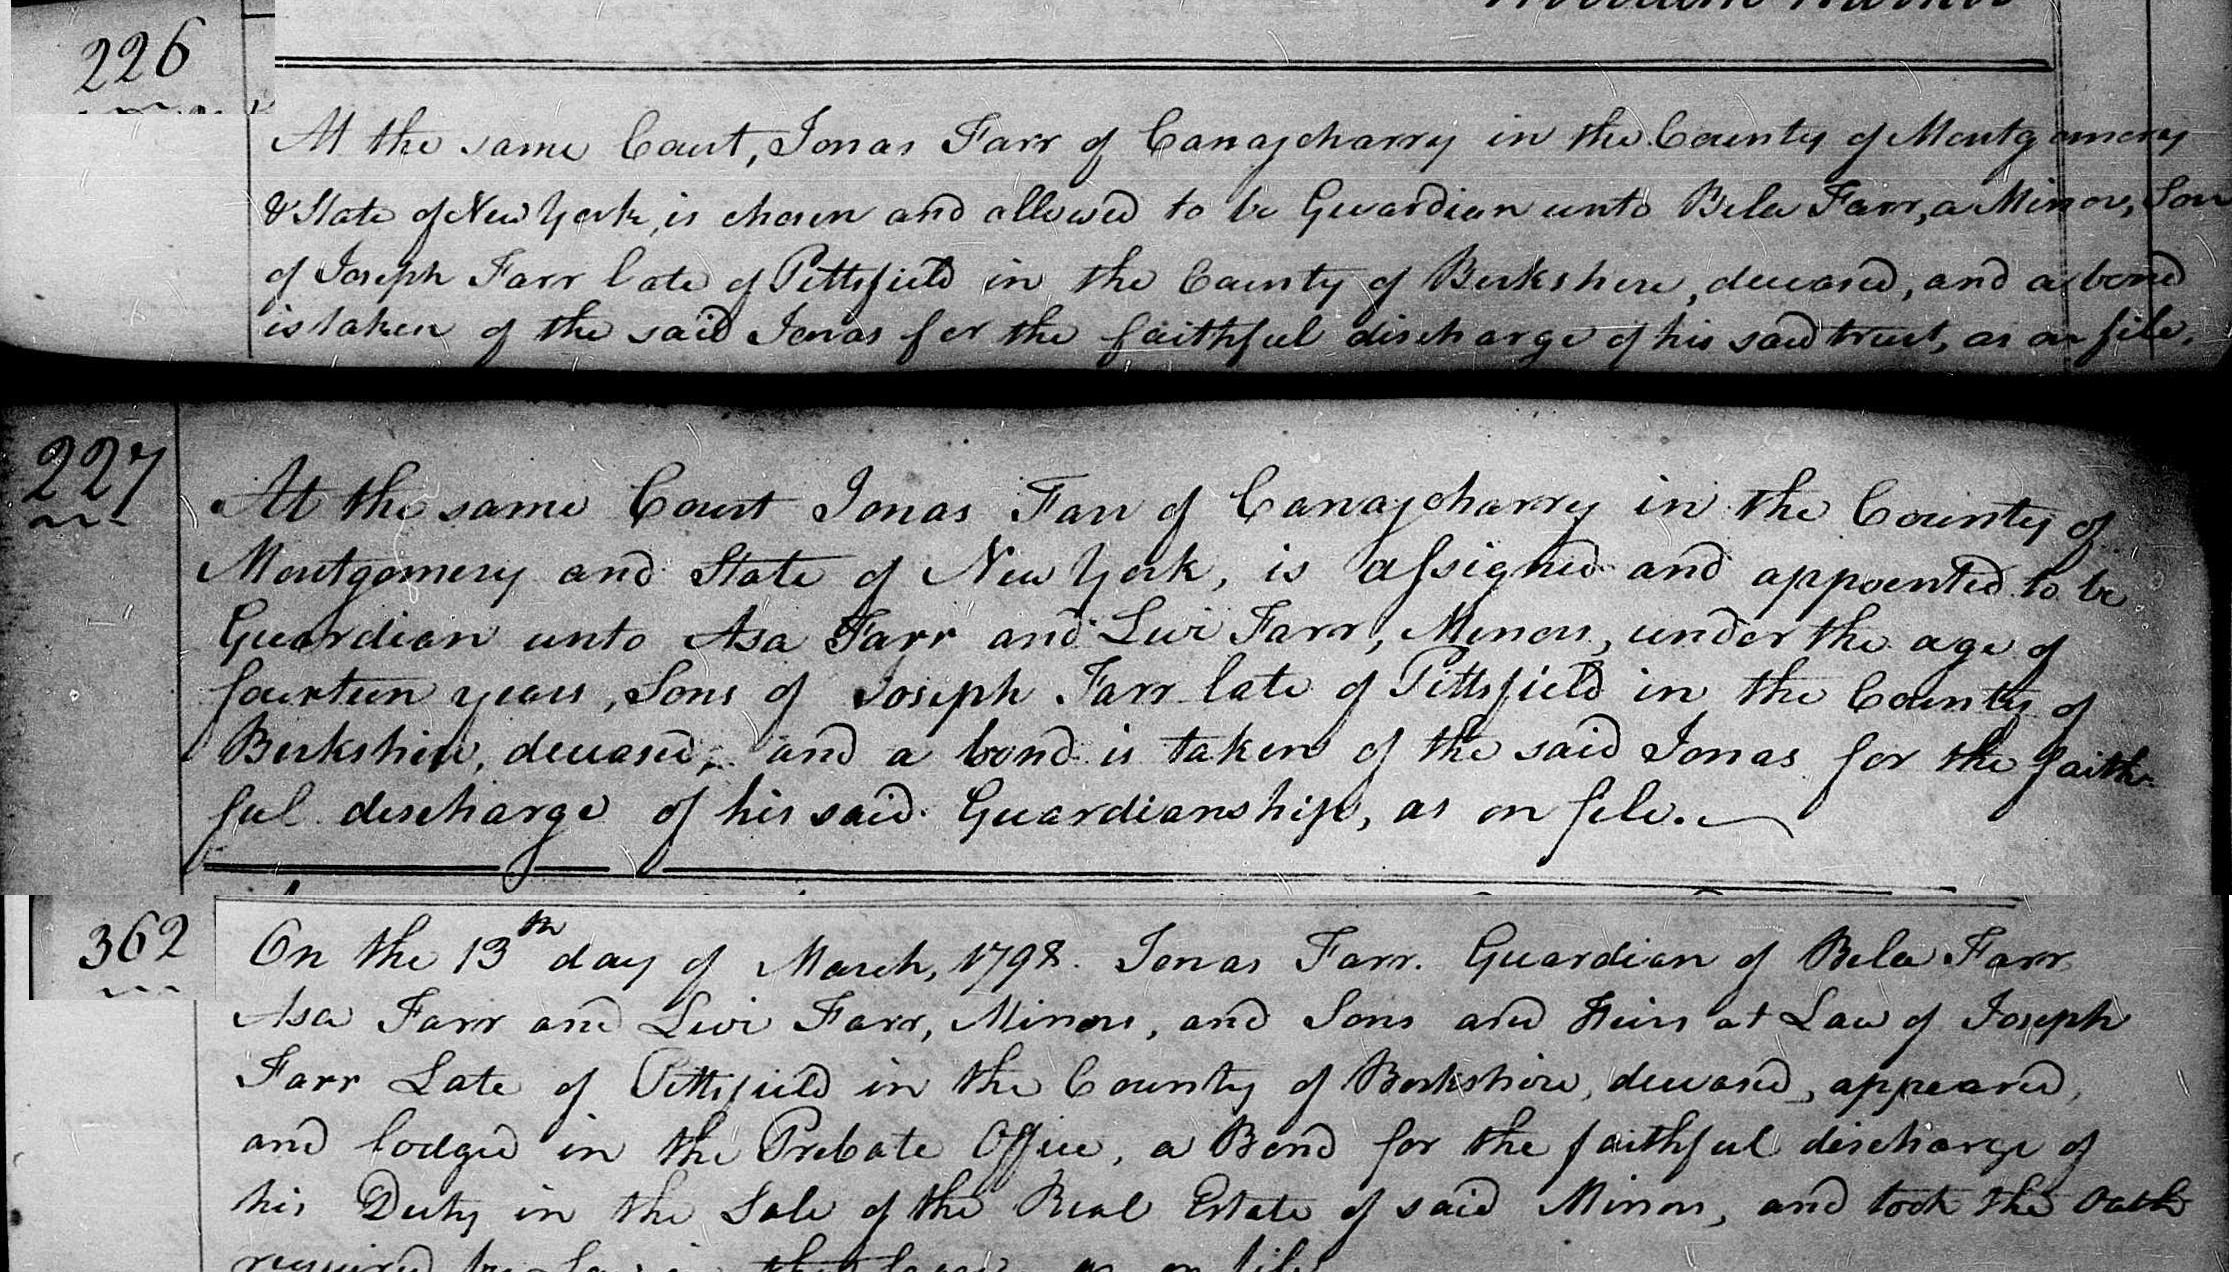 226
At the same Court, Jonas Farr of Canajoharry in the County of Montgomery
& State of New York, is chosen and allowed to be Guardian unto Bela Farr, a Minor, Son
of Joseph Farr late of Pittsfield in the County of Berkshire, deceased, and a bond
is taken of the said Jonas for the faithful discharge of his said trust, as on file.
227
At the same Court Jonas Farr of Canajoharry in the County of
Montgomery and State of New York, is assigned and appointed to be
Guardian unto Asa Farr and Levi Farr, Minors, under the age of
fourteen years, Sons of Joseph Farr late of Pittsfield in the County of
Berkshire, deceased, and a bond is taken of the said Jonas for the faith-
ful discharge of his said Guardianship, as on file.
362
On the 13th day of March, 1798. Jonas Farr. Guardian of Bela Farr
Asa Farr and Levi Farr, Minors, and Sons and Heirs at Law of Joseph
Farr Late of Pittsfield in the County of Berkshire, deceased, appeared,
and lodged in the Probate Office, a Bond for the faithful discharge of
his Duty in the Sale of the Real Estate of said Minors, and took the Oath
required by Law in that case, as on file